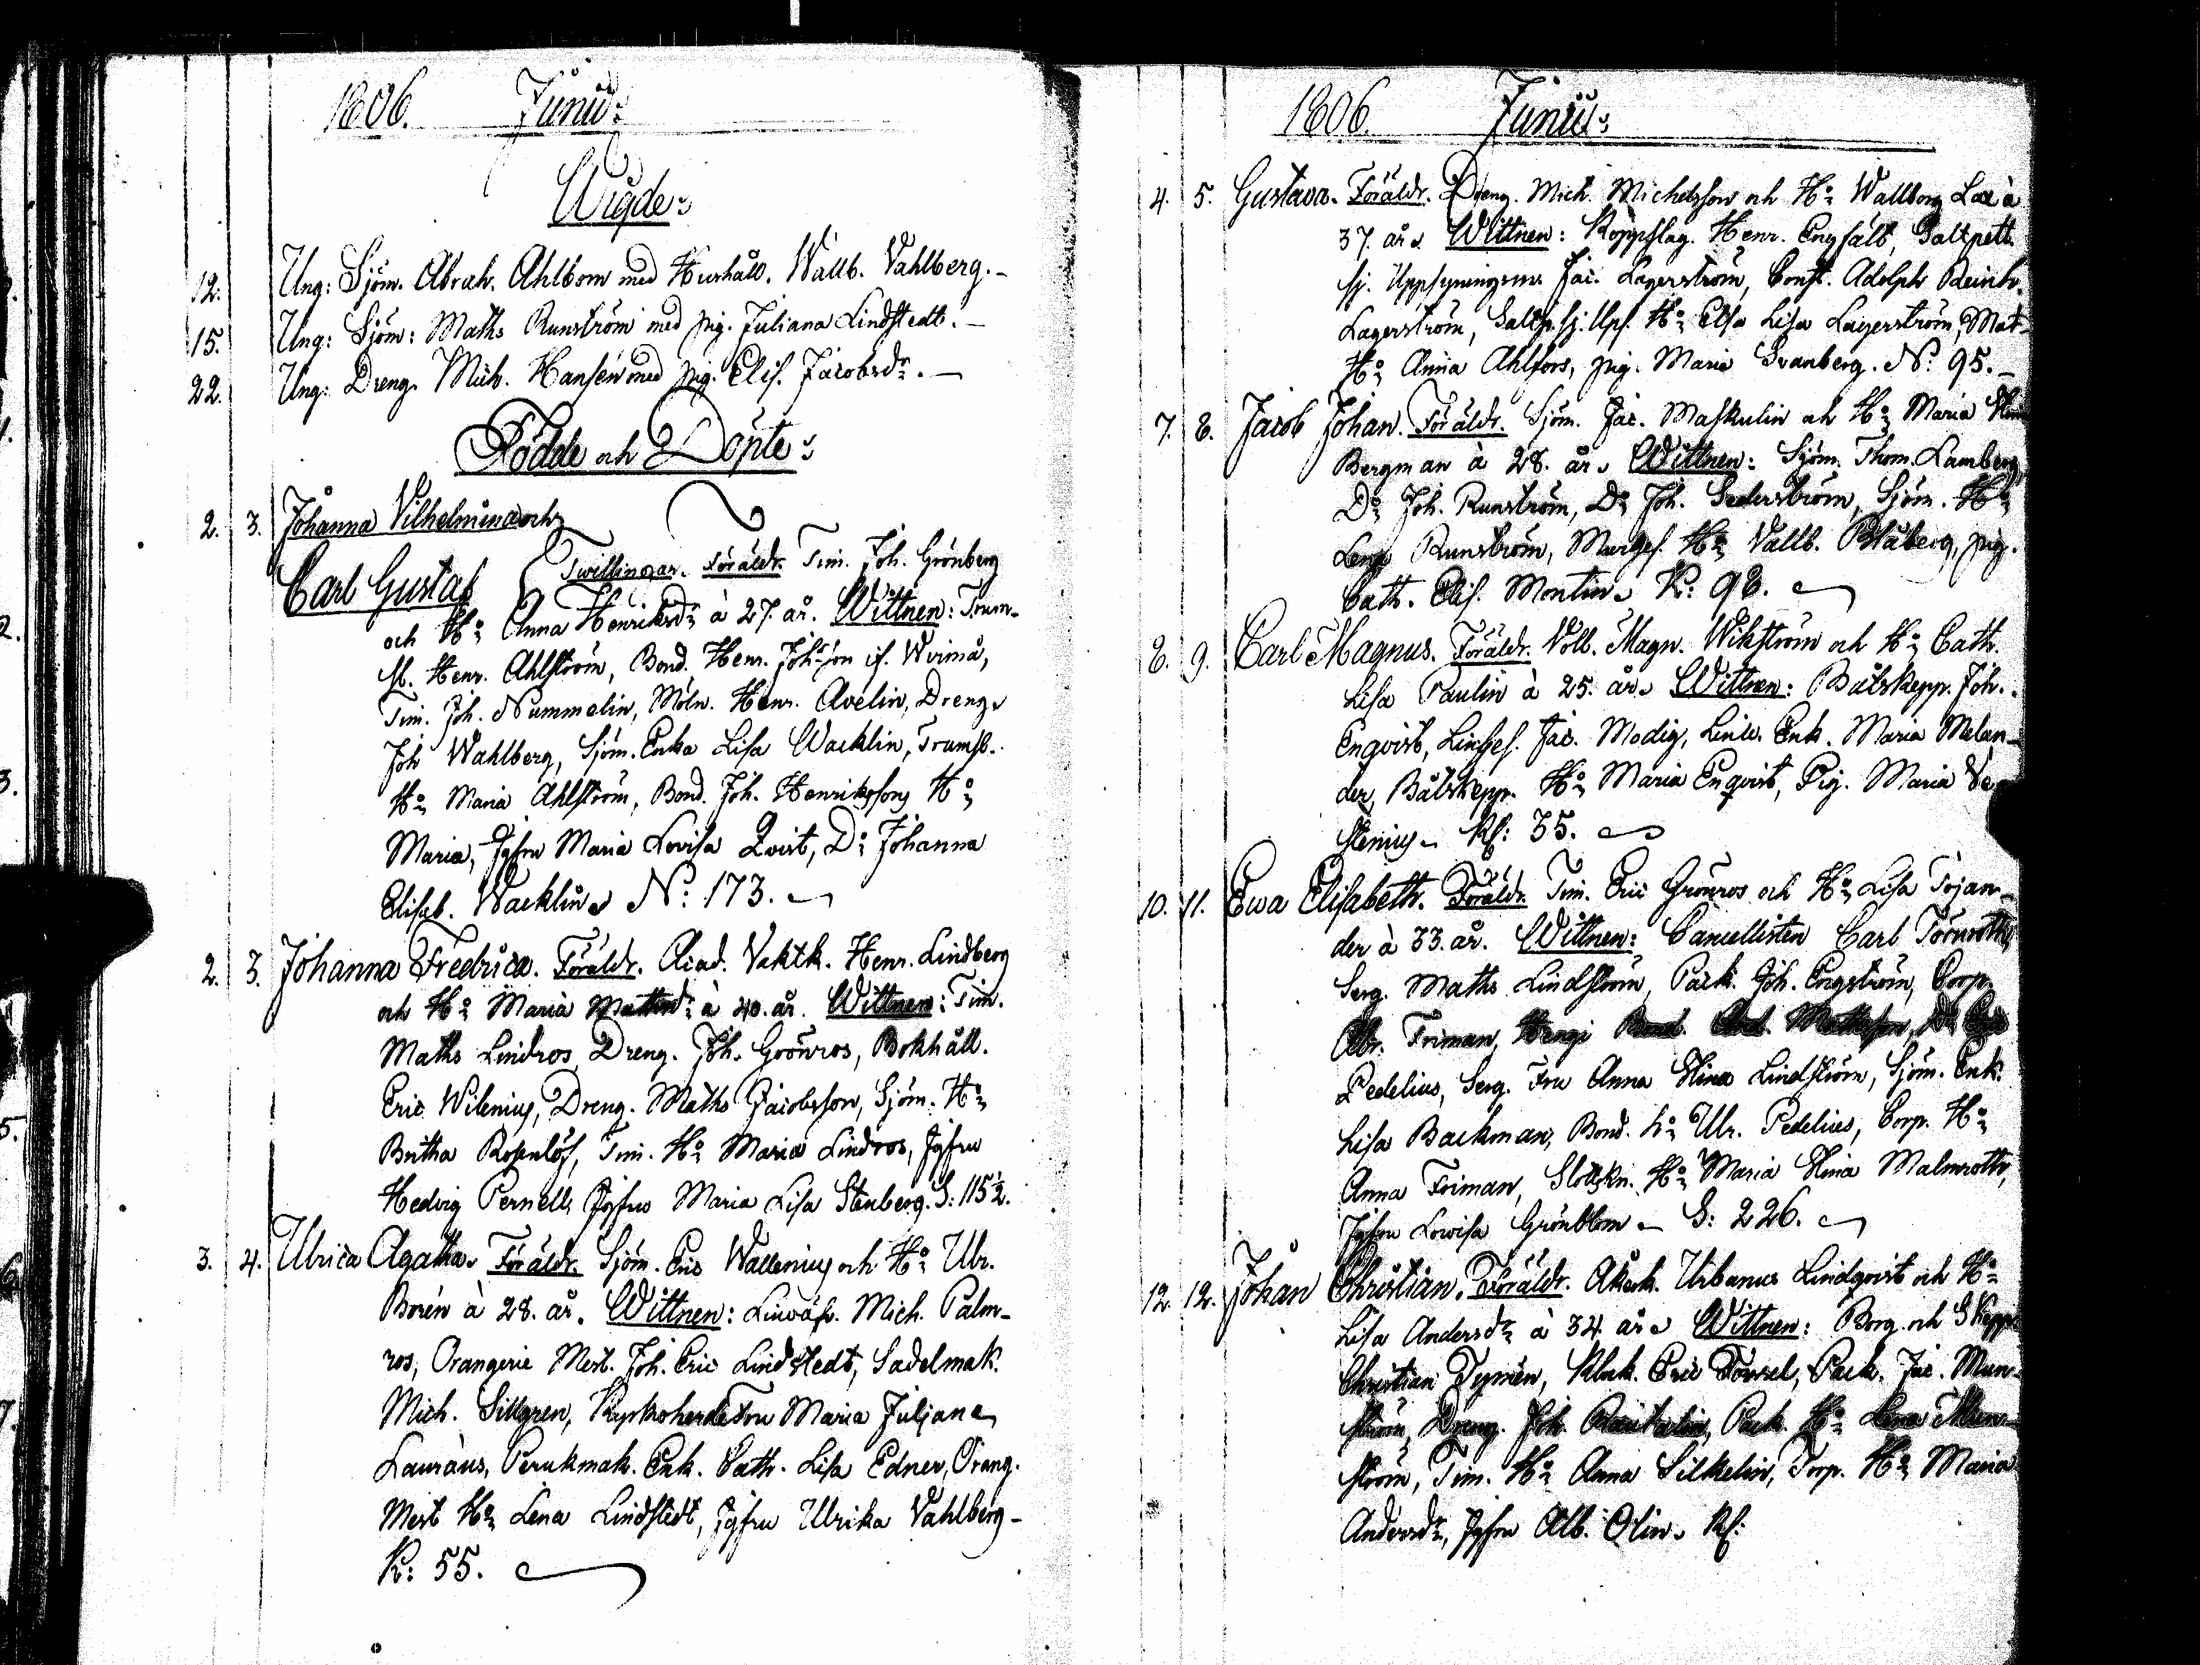 1806. Junii:
Wigde:
12. Ung: Sjöm. Abrah. Ahlbom med Hushåll. Wallb. Vahlberg.-
15. Ung: Sjöm: Maths Runström med pig. Juliana Lindstedt.-
22. Ung: Dreng. Mich. Hansén med pig. Elis. Jacobsdr.-
Födde och Döpte:
2. 3. Johanna Vilhelmina och
Carl Gustaf Twillingar. Föräldr. Tim. Joh. Grönberg
och Ho: Anna Henriksdr à 27. år. Wittnen: Trum-
sl. Henr. Ahlström, Bond. Henr. Joh:son if. Wirmå,
Tim. Joh. Nummelin, Möln. Henr. Avelin, Dreng.
Joh Wahlberg, Sjöm. Enka Lisa Wacklin, Trumsl.
Ho: Maria Ahlström, Bond. Joh. Henrikssons Ho:
Maria, Jgfru Maria Lovisa Qvist, D: Johanna
Elisab. Wacklin. N: 173.
2. 3. Johanna Fredrica. Föräldr. Acad. Vaktk. Henr. Lindberg
och Ho: Maria Mattsdr à 40. år. Wittnen: Tim.
Maths Lindros, Dreng. Joh. Grönros, Bokhåll.
Eric Wilenius, Dreng. Maths Jacobsson, Sjöm. Ho:
Britha Rosenlöf, Tim. Ho: Maria Lindros, Jgfru
Hedvig Pernell, Jgfru Maria Lisa Stenberg. S: 115½.
3. 4. Ulrica Agatha. Föräldr. Sjöm. Eric Wallenius och Ho: Ulr.
Borén à 28. år. Wittnen: Linväfv. Mich. Palm-
ros, Orangerie Mest. Joh. Eric Lindstedt, Sadelmak.
Mich. Sillgren, Kyrkoherde Fru Maria Juliana
Lauræus, Perukmak. Enk. Cath. Lisa Edner, Orang.
Mest Ho: Lena Lindstedt, Jgfru Ulrika Vahlberg-
K: 55.
1806. Junii:
4. 5. Gustava. Föräldr. Dreng. Mich. Michelsson och Ho: Wallborg à
37. år. Wittnen: Koppslag. Henr. Engfält, Saltpett.
sj. Uppsyningsm. Jac. Lagerström, Const. Adolph Reinh.
Lagerström, Saltp. sj. Ups. Ho: Elsa Lisa Lagerström, Mat-
Ho: Anna Ahlfors, pig. Maria Svanberg. N: 95.-
7. 8. Jacob Johan. Föräldr. Sjöm. Jac. Maskulin och Ho: Maria
Bergman à 28. år. Wittnen: Sjöm. Thom. Lamberg,
Do: Joh. Runström, D: Joh. Sederström, Sjöm. Ho:
Lena Runström, Murges. Ho: Vallb. Blåberg, pig.
Cath. Elis. Montin. K: 98.
8. 9. Carl Magnus. Föräldr. Volb. Magn. Wikström och Ho: Cath.
Lisa Paulin à 25. år. Wittnen: Båtskepp. Joh.
Enqvist, Linges. Jac. Modig, Linw. Enk. Maria Melan-
der, Båtskepp. Ho: Maria Enqvist, Pig. Maria
stenius. Kl: 35.
10. 11. Ewa Elisabeth. Föräldr. Tim. Eric Grönros och Ho: Lisa Trojan-
der à 33. år. Wittnen: Cancellisten Carl Törnroth,
Serg. Maths Lindström, Pack. Joh. Engström, Corp.
Abr. Friman,
Pedelius, Serg. Fru Anna Stina Lindström, Sjöm. Enk.
Lisa Backman, Bond. ho: Ulr. Pedelius, Corp. Ho:
Anna Friman, Slottskn. Ho: Maria Stina Malmroth,
Jgfru Lowisa Grönblom. S: 226.
12. 12. Johan Christian. Föräldr. Åkerk. Urbanus Lindqvist och Ho:
Lisa Andersdr à 34 år. Wittnen: Borg. och Skepp.
Christian Tymén, Klock. Eric Forssel, Pack. Jac. Mun-
ström, Dreng. Joh. Rautalin, Pack. Ho: Lena Mun-
ström, Tim. Ho: Anna Silkelin, Torp. Ho: Maria
Andersdr, Jgfru Alb. Olin. Kl: